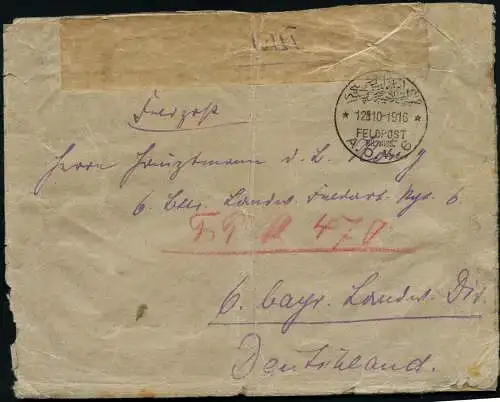 Feldpost
12 10-1916
FELDPOST
A.O.K. 6
Herrn Hauptmann d. L.
6. Btr. Landw. Feldart. Rgt. 6
FP 470
6. bayr. Landw. Div.
Deutschland.